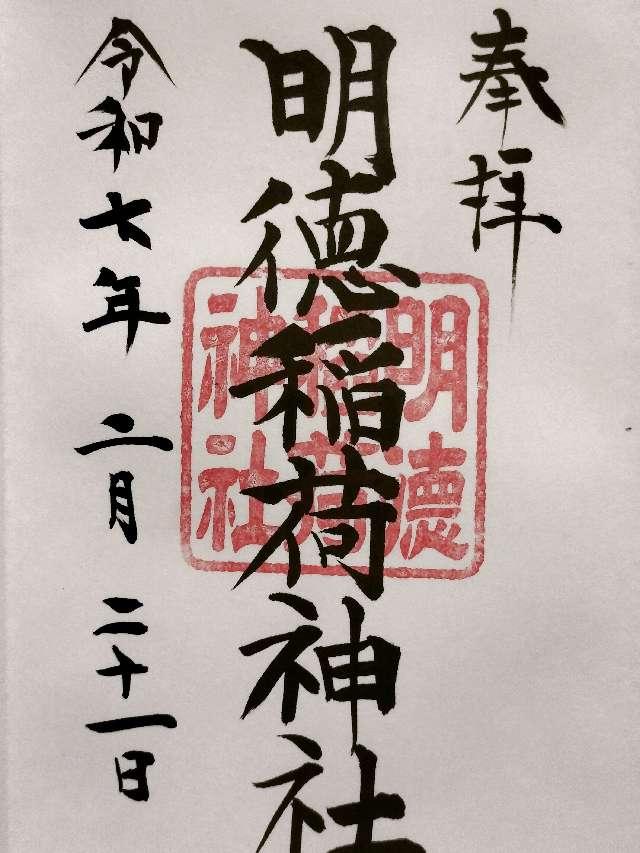 奉拝
明徳稲荷神社
明徳
稲荷
神社
令和七年 二月 二十一日